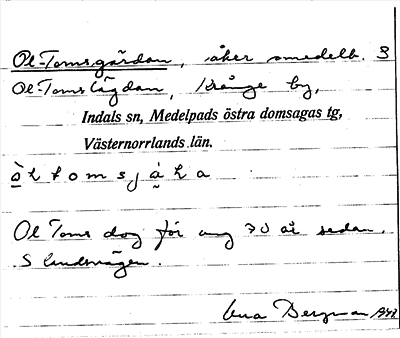 Ol-Tomsgårdan, åker omedelb. S
Ol-Tomslägdan, Kränge by,
Indals sn, Medelpads östra domsagas tg,
Västernorrlands län.
Ol Toms dog för ung 70 år sedan.
S landsvägen.
Bergman